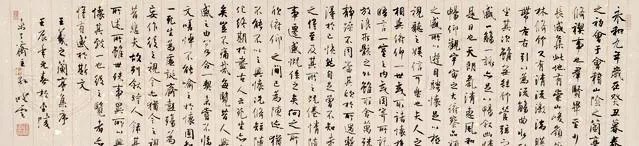 永和九年歲在癸丑暮春
之初會于會稽山陰之蘭亭
脩禊事也羣賢畢至少
長咸集此地有崇山峻嶺茂
林脩竹又有清流激湍映
帶左右引以爲流觴曲水列
坐其次雖無絲竹管弦之
盛一觴一詠亦足以暢敘幽情
是日也天朗氣清惠風和
暢仰觀宇宙之大俯察品類
之盛所以遊目騁懷足以極
視聽之娛信可樂也夫人之
相與俯仰一世或取諸懷抱
悟言一室之內或因寄所託
放浪形骸之外雖趣舍萬殊
靜躁不同當其欣於所遇
暫得於己快然自足不知老
之將至及其所之既惓情隨
事遷感慨係之矣向之所
欣俛仰之間以爲陳迹猶
不能不以之興懷況脩短隨
化終期於盡古人云死生亦大
矣豈不痛哉每覽昔人興
感之由若合一契未嘗不臨
文嗟悼不能喻之於懷固知
一死生爲虛誕齊彭殤爲
妄作後之視今亦猶今之視
昔悲夫故列敘時人錄其
所述雖世殊事異所以興
懷其致一也後之覽者亦
將有感於斯文
王羲之蘭亭集序
壬辰 春於金陵
齋主